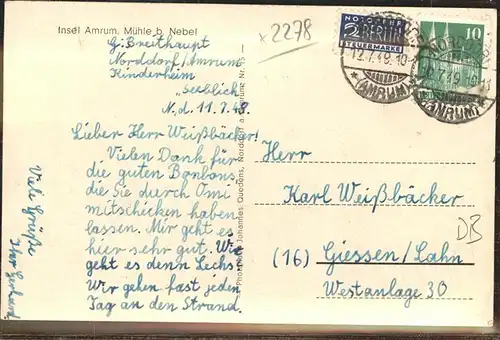 Insel Amrum. Mühle b. Nebel
x2278
G. Breithaupt
Norddorf/Amrum
Kinderheim
„Seeblick"
N.d. 11.7.49.
Lieber Herr Weißbäcker!
Vielen Dank für
die guten Bonbons,
die Sie durch Omi
mitschicken haben
lassen. Mir geht es
hier sehr gut. Wie
geht es denn Lechs.
Wir gehen fast jeden
Tag an den Strand.
Viele Grüße
Ihr Gerhard
Johannes Quedens, Norddorf a.
NOTOPFER
2 BERLIN
STEUERMARKE
10
12.7.49.10
(AMRUM)
12.7.49.10
(AMRUM)
Herr
Karl Weißbäcker
(16) Giessen/Lahn
Westanlage 30
DB